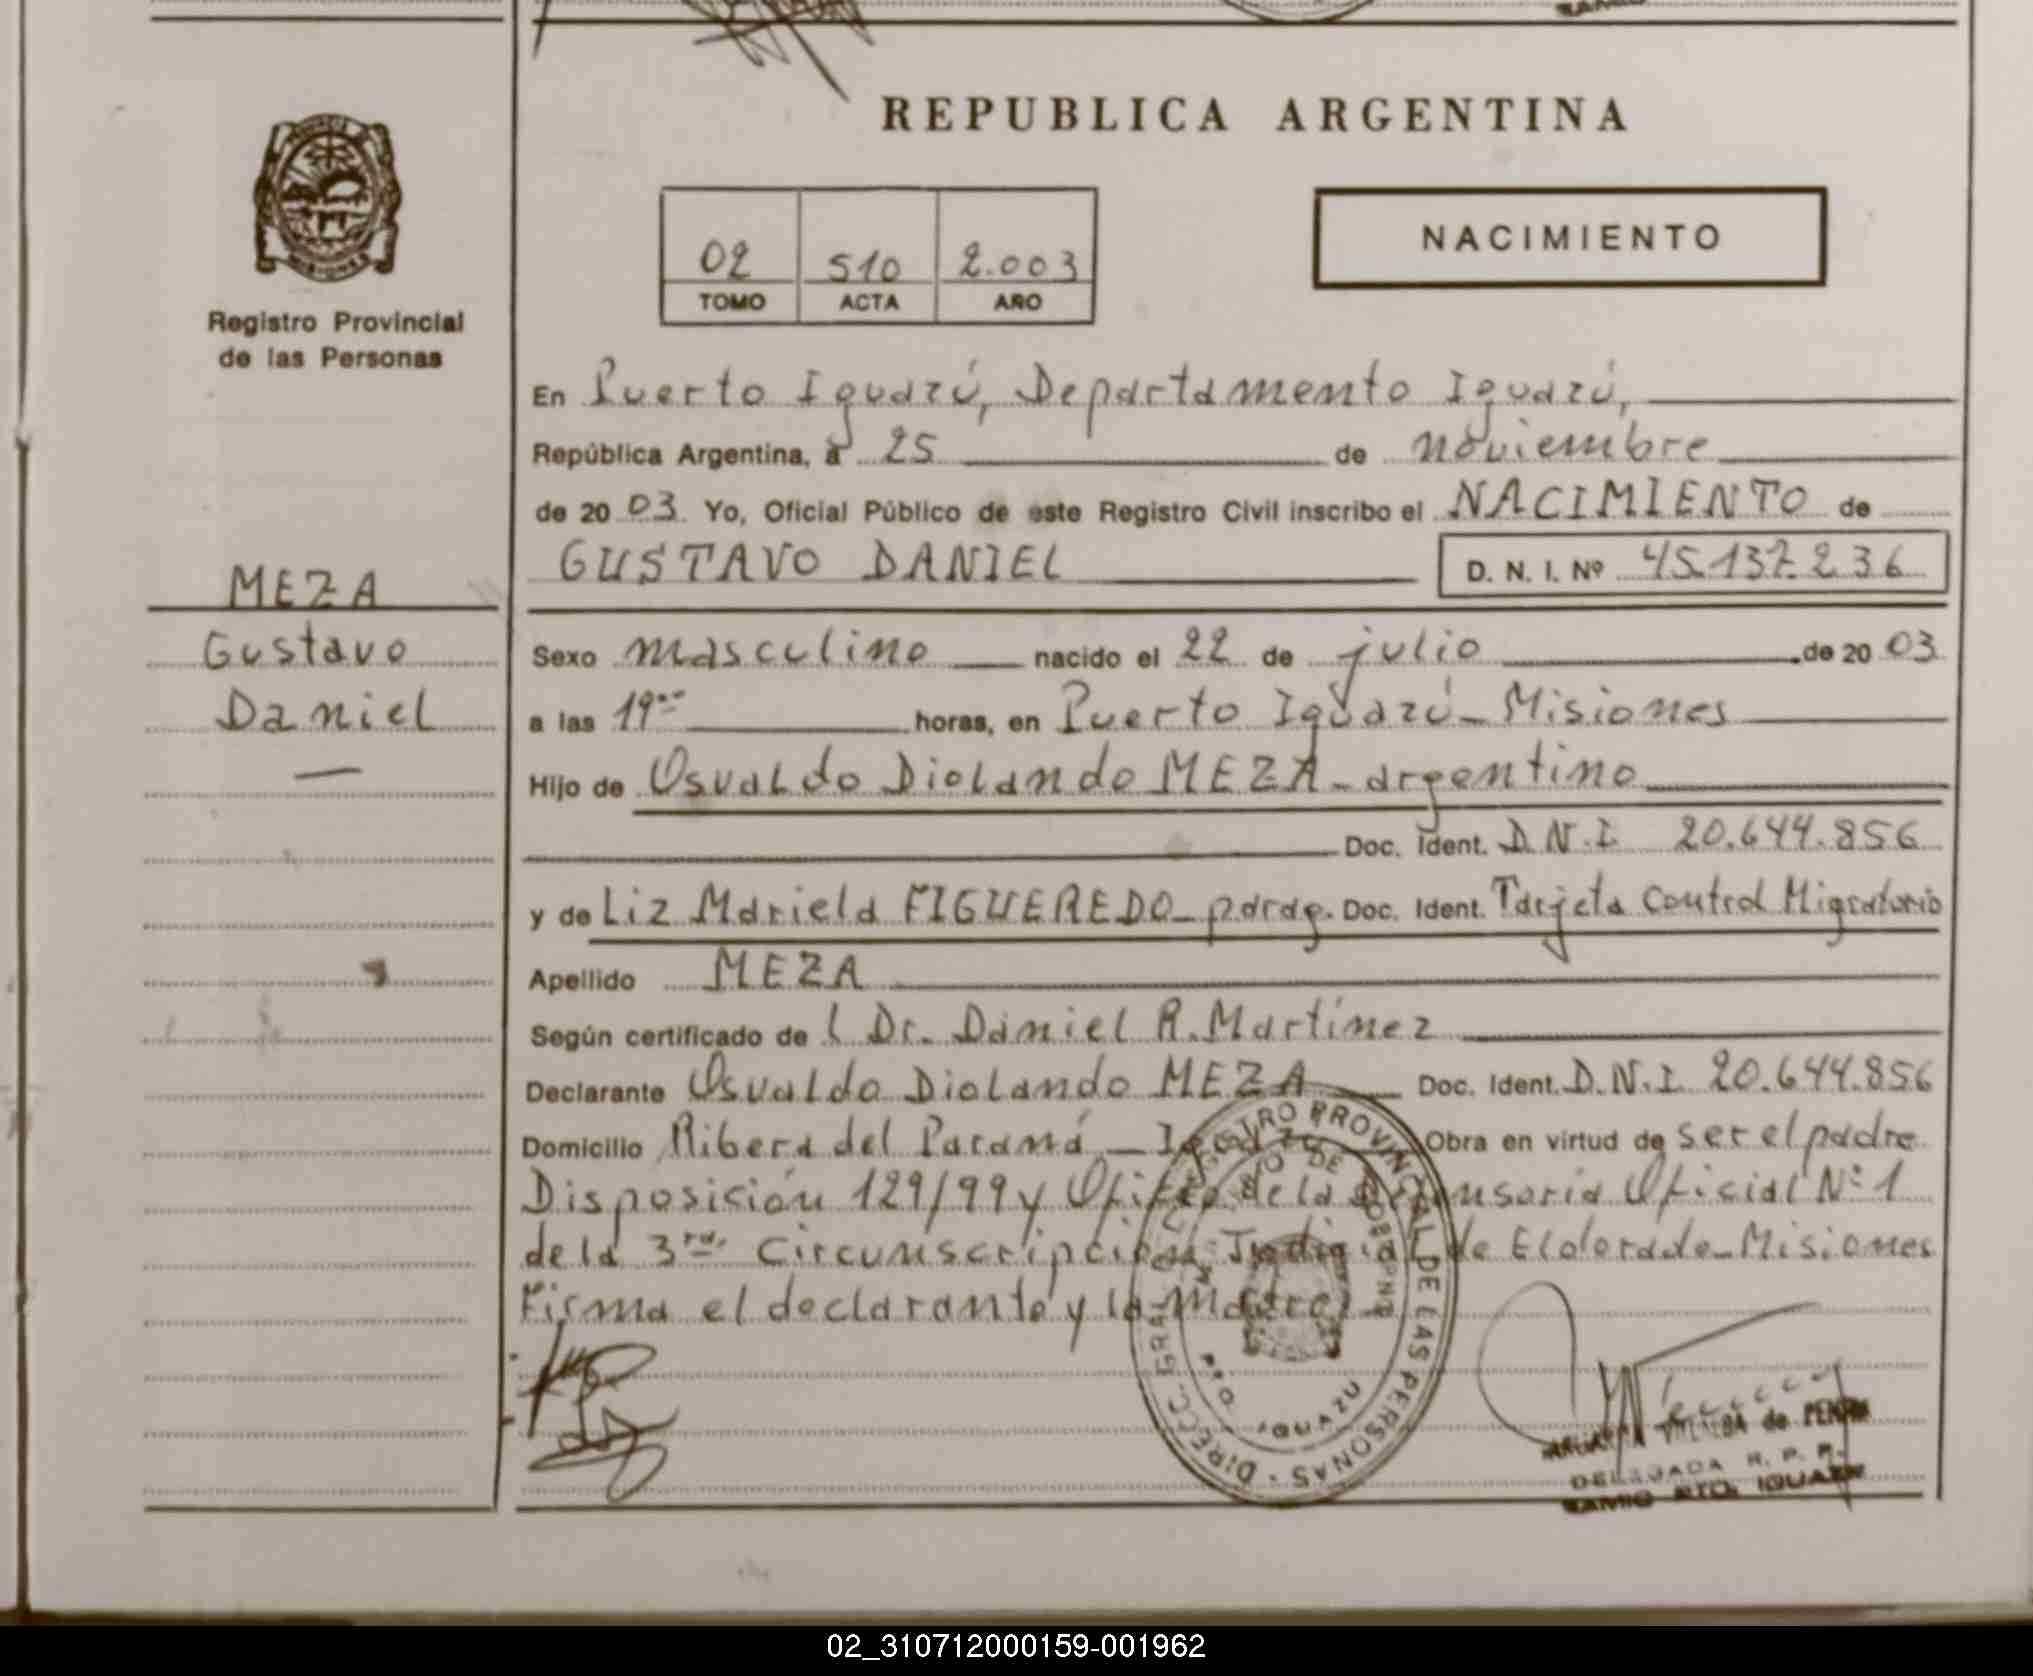 REPUBLICA ARGENTINA
MISIONES
Registro Provincial
de las Personas
02 510 2.003
TOMO ACTA AÑO
NACIMIENTO
En Puerto Iguazú, Departamento Iguazú,
República Argentina, a 25 de noviembre
de 20 03 Yo, Oficial Público de este Registro Civil inscribo el NACIMIENTO de
GUSTAVO DANIEL D. N. I. Nº 45.137.236
MEZA
Gustavo
Daniel
Sexo masculino nacido el 22 de julio de 20 03
a las 19 horas, en Puerto Iguazú - Misiones
Hijo de Osvaldo Diolando MEZA - argentino
Doc. Ident. D.N.I. 20.644.856
y de Liz Mariela FIGUEREDO - parag. Doc. Ident. Tarjeta Control Migratorio
Apellido MEZA
Según certificado de l Dr. Daniel R. Martínez
Declarante Osvaldo Diolando MEZA Doc. Ident. D.N.I. 20.644.856
Domicilio Ribera del Paraná - Iguazú Obra en virtud de ser el padre
Disposición 129/99 y Oficio de la Defensoria Oficial Nº 1
de la 3ra. Circunscripción Judicial de Eldorado - Misiones
Firma el declarante y la madre
DIRECC. GRAL. REGISTRO PROVINCIAL DE LAS PERSONAS
IGUAZU
VILLALBA de
DELEGADA R. P. P.
PTO. IGUAZU
02_310712000159-001962